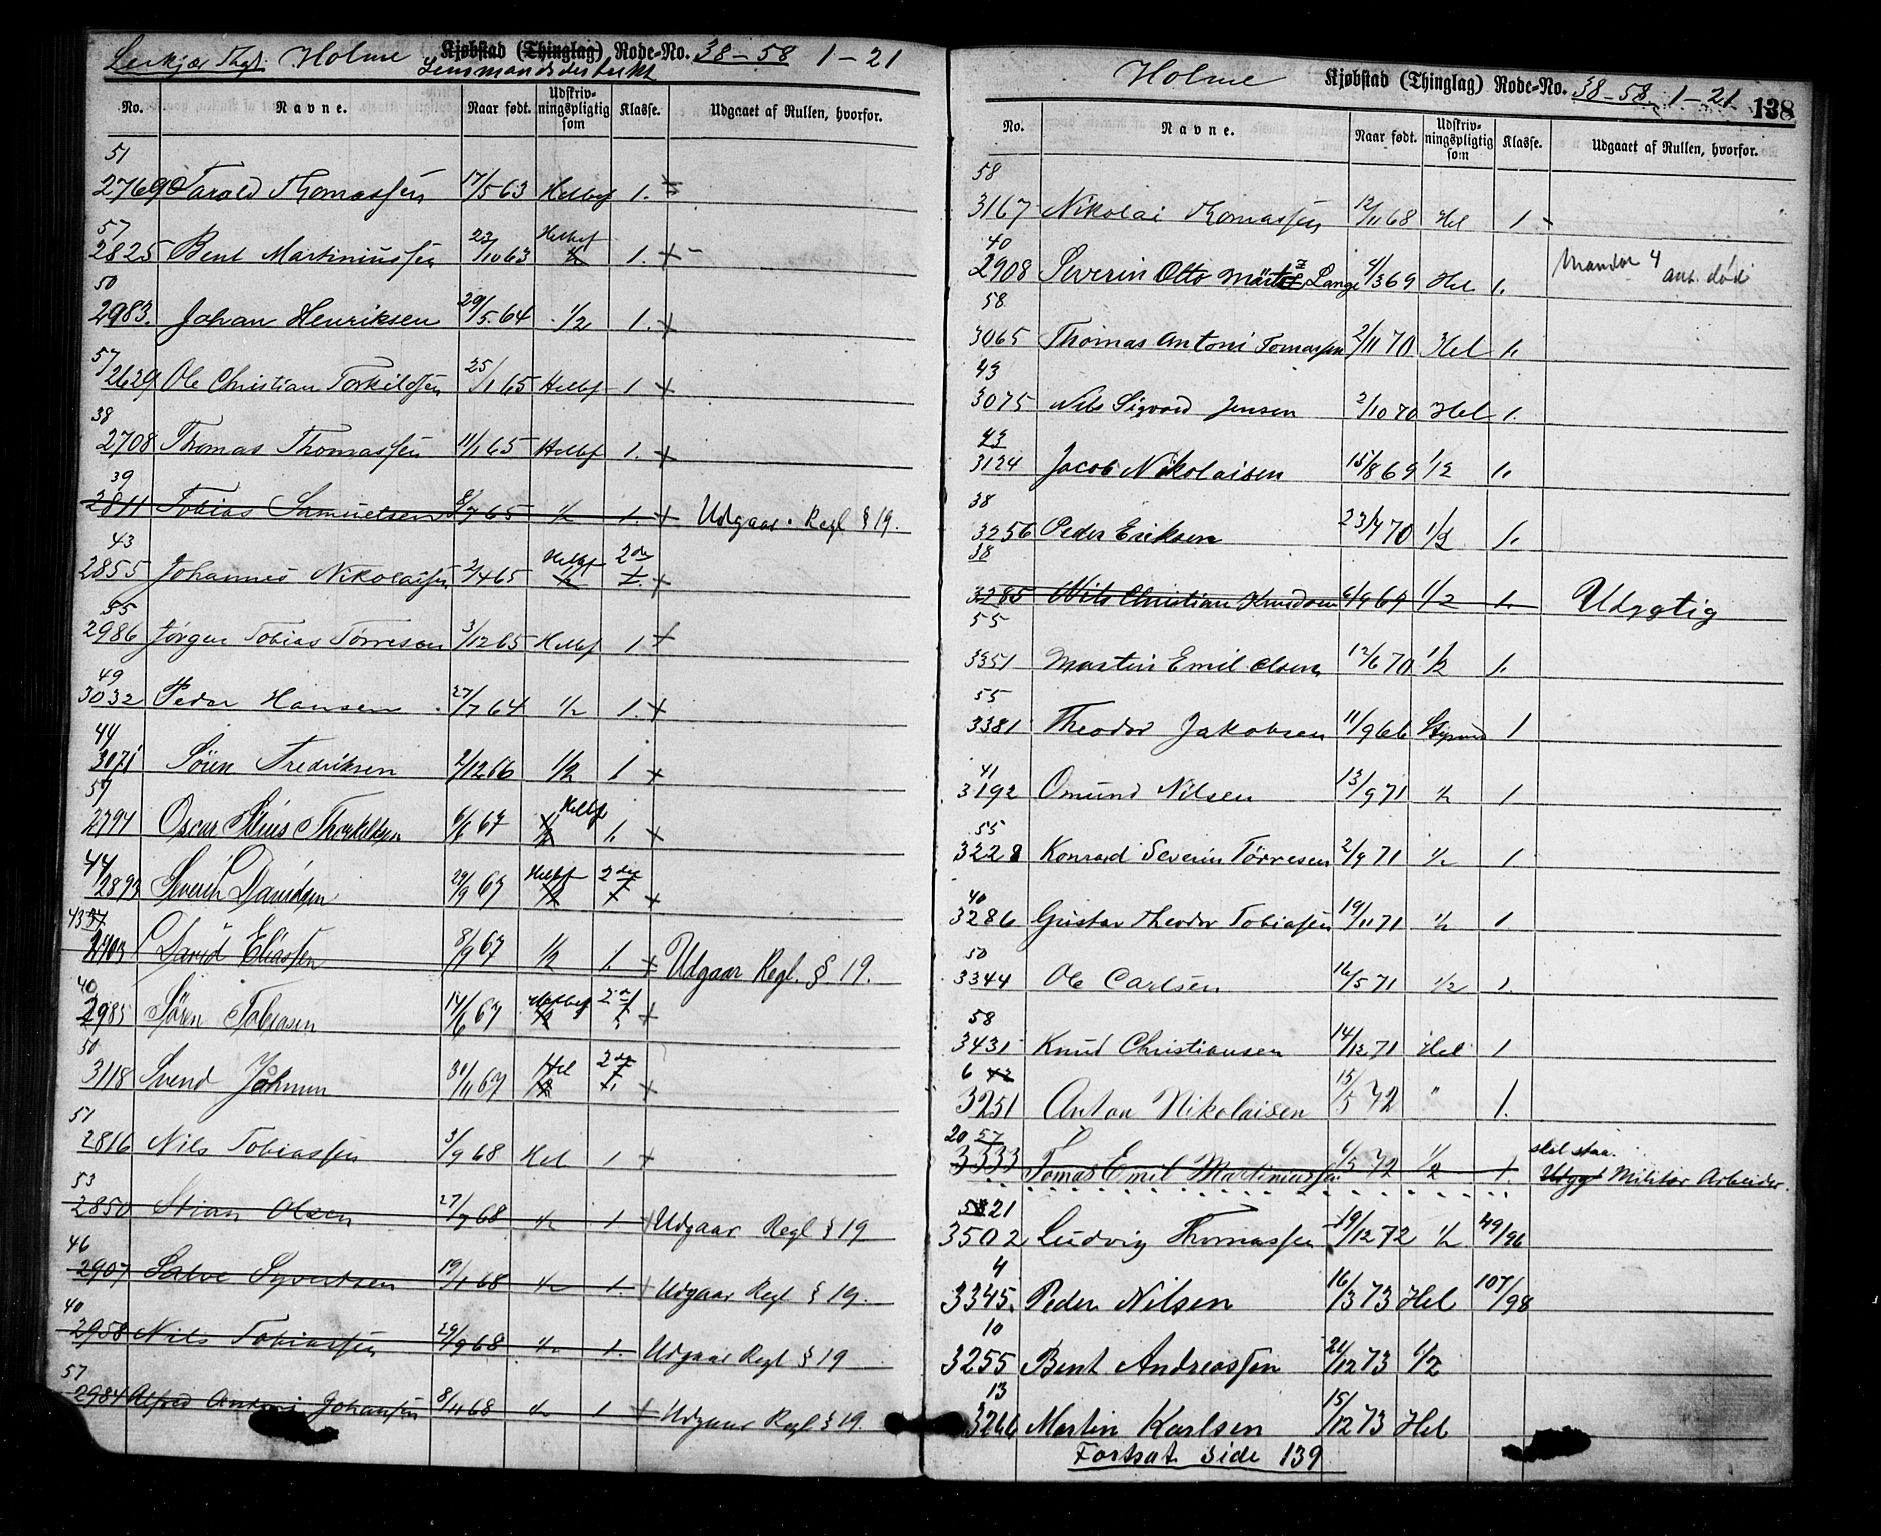 Holme Kjøbstad (Thinglag) Rode-No. 38-58 1-21
Lensmandsdistrikt
No. Navne. Naar født. Udskriv-ningspligtig som Klasse. Udgaaet af Rullen, hvorfor.
51
2769 Tarald Thomassen 17/5 63 Helbef 1.
57
2825 Bent Martiniussen 23/10 63 Helbef 1/2 1. +
50
2983. Johan Henriksen 29/5.64 1/2 1. +
57
2629 Ole Christian Torkildsen 25/1 65 Helbf 1 +
38
2708 Thomas Thomassen 11/1 65 Helbf 1. +
39
2811 Tobias Samuelsen 8/7 65 1/2 1. + Udgaar. Regl § 19.
43
2855 Johannes Nikolaisen 2/4 65 Helbf 1/2 2de 1. +
55
2986 Jørgen Tobias Tørresen 3/12 65 Helbf 1 +
49
3032 Peder Hansen 27/7 64 1/2 1. +
44
3071 Sören Fredriksen 2/12 66 1/2 1 +
57
2794 Oscar Thorkildsen 6/6 67 Helbf 1/2 1. +
44
2893 Severin Davidsen 29/9 67 Helbf 1/2 2de 1 +
43 57
2903 David Eliassen 8/9 67 1/2 1. + Udgaar Regl. § 19.
40
2985 Sören Tobiasen 14/6 67 Helbef 1/2 2de 1 +
50
3118 Svend Johnsen 30/11 67 Hel 1/2 2de 1. +
51
2816 Nils Tobiassen 3/9 68 Hel 1 +
53
2850 Stian Olsen 27/7 68 1/2 1 + Udgaar Regl § 19
46
2907 Salve Syvertsen 19/1 68 1/2 1. + Udgaar Regl § 19.
40
2958 Nils Tobiassen 29/9 68 1/2 1. + Udgaar Regl § 19
57
2984 Alfred Andreas Johansen 8/4 68 1/2 1 + Udgaar Regl § 19.
Holme Kjøbstad (Thinglag) Rode-No. 38-58 1-21 138
No. Navne. Naar født. Udskriv-ningspligtig som Klasse. Udgaaet af Rullen, hvorfor.
58
3167 Nikolai Thomassen 12/11 68 Hel 1
40
2908 Severin Otto Lange 4/3 69 Hel 1. ant. død
58
3065 Thomas Antoni Tomassen 2/11 70 Hel 1.
43
3075 Nils Sigvard Jensen 2/10 70 Hel 1.
43
3124 Jacob Nikolaisen 15/8 69 1/2 1.
38
3256 Peder Eriksen 23/4 70 1/2 1.
38
3285 Nils Christian Knudsen 9/9 69 1/2 1. Udygtig
55
3351 Martin Emil Olsen 12/6 70 1/2 1.
55
3381 Theodor Jakobsen 11/9 66 Styrmd 1
41
3192 Omund Nilsen 13/9 71 1/2 1
55
3228 Konrad Severin Tørresen 2/9 71 1/2 1
40
3286 Gustav Theodor Tobiassen 19/11 71 1/2 1
50
3344 Ole Carlsen 16/5 71 1/2 1.
58
3431 Knud Christiansen 14/12 71 Hel 1
6 43
3251 Anton Nikolaisen 15/5 72 " 1.
20 57 skal staa.
3333 Tomas Emil Martiniussen 6/5 72 1/2 1. Udygt Militær Arbeider.
58 21
3502 Ludvig Thomassen 19/12 72 1/2 49/96
4
3345. Peder Nilsen 16/3 73 Hel 107/98
10
3255 Bent Andreassen 21/12 73 1/2
13
3266 Martin Karlsen 15/12 73 Hel
Fortsat side 139